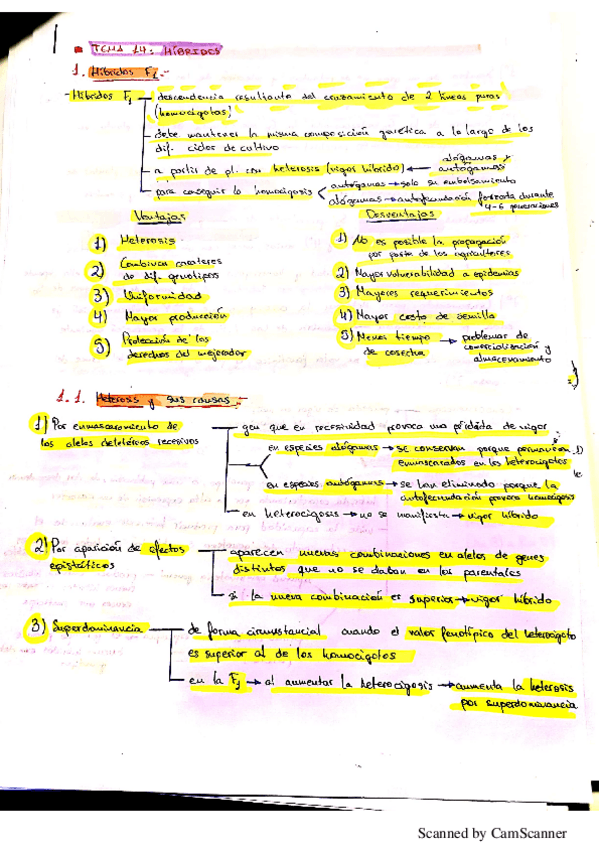 TEMA 14: HÍBRIDOS
1. Híbridos F1.-
- Híbridos F1
descendencia resultante del cruzamiento de 2 líneas puras
(homocigotas)
debe mantener la misma composición genética a lo largo de los
dif. ciclos de cultivo
a partir de pl. con heterosis (vigor híbrido) ← alógamas y
autógamas
para conseguir la homocigosis
autógamas → solo su embolsamiento
alógamas → autofecundación forzada durante
4-6 generaciones
Ventajas
1) Heterosis
2) Combinar caracteres
de dif. genotipos
3) Uniformidad
4) Mayor producción
5) Protección de los
derechos del mejorador
Desventajas
1) No es posible la propagación
por parte de los agricultores
2) Mayor vulnerabilidad a epidemias
3) Mayores requerimientos
4) Mayor costo de semilla
5) Menos tiempo
de cosecha
→ problemas de
comercialización y
almacenamiento
1.1. Heterosis y sus causas.-
1) Por enmascaramiento de
los alelos deletéreos recesivos
gen que en recesividad provoca una pérdida de vigor
en especies alógamas → se conservan porque permanecen
enmascarados en los heterocigotos
en especies autógamas → se han eliminado porque la
autofecundación provoca homocigosis
en heterocigosis → no se manifiesta → vigor híbrido
2) Por aparición de efectos
epistáticos
aparecen nuevas combinaciones en alelos de genes
distintos que no se daban en los parentales
si la nueva combinación es superior → vigor híbrido
3) Superdominancia
de forma circunstancial cuando el valor fenotípico del heterocigoto
es superior al de los homocigotos
en la F1 → al aumentar la heterocigosis → aumenta la heterosis
por superdominancia
Scanned by CamScanner